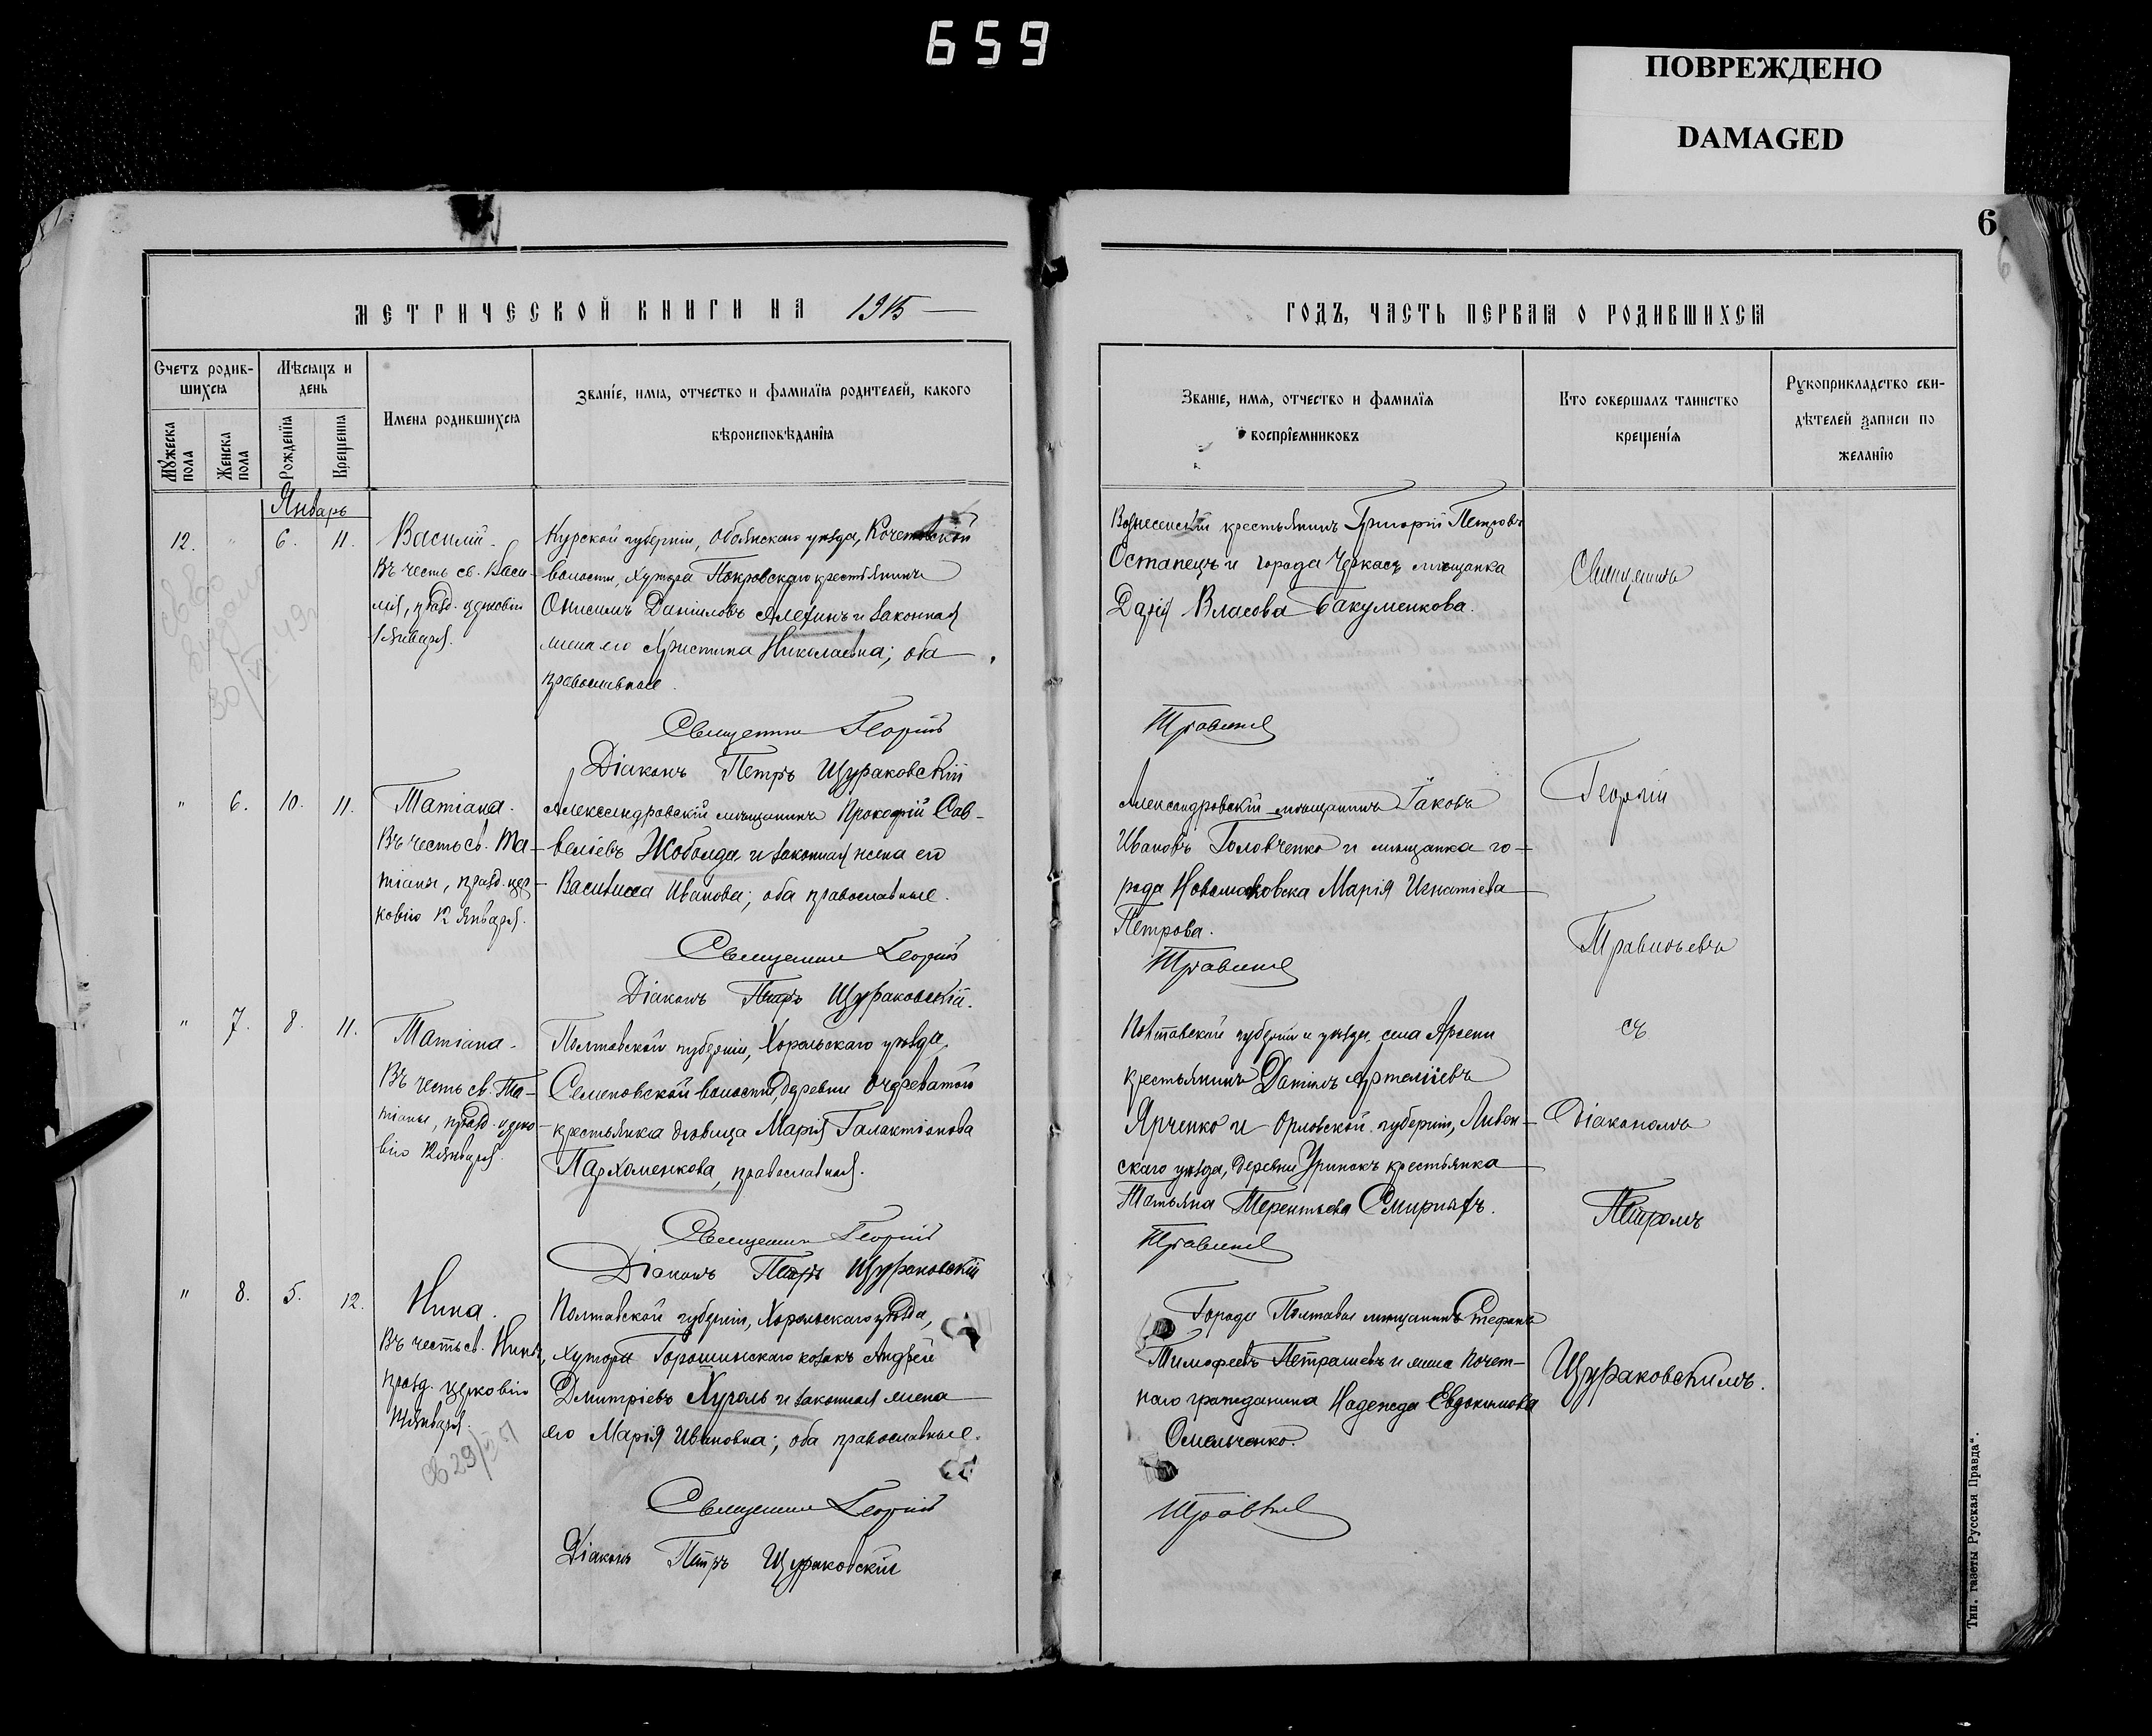 659
ПОВРЕЖДЕНО
DAMAGED
6
МЕТРИЧЕСКОЙ КНИГИ НА 1915
ГОДЪ, ЧАСТЬ ПЕРВАЯ О РОДИВШИХСЯ
Счетъ родив-
шихся
Мужеска
пола
Женска
пола
Мѣсяцъ и
день
Рожденїя
Крещенія
Имена родившихся
Званїе, имя, отчество и фамилїя родителей, какого
вѣроисповѣданїя
Званїе, имя, отчество и фамилїя
воспрїемниковъ
Кто совершалъ таинство
крещенїя
Рукоприкладство сви-
дѣтелей записи по
желанїю
Январь
12. " 6. 11.
Василій.
Въ честь св. Васи-
лія, празд. церковію
1 января.
Курской губерніи, Обоянскаго уѣзда, Кочетовской
волости, хутора Покровскаго крестьянинъ
Онисимъ Даніиловъ Алехинъ и законная
жена его Христина Николаевна; оба
православные.
Священникъ Георгій
Діаконъ Петръ Щураковскій
Вознесенскій крестьянинъ Григорій Петровъ
Остапецъ и города Черкасъ мѣщанка
Дарія Власова Бакуменкова.
Травинъ
Священникъ
" 6. 10. 11.
Татіана.
Въ честь св. Та-
тіаны, празд. цер-
ковію 12 января.
Александровскій мѣщанинъ Прокофій Сав-
веліевъ Жоболда и законная жена его
Василисса Иванова; оба православные.
Священникъ Георгій
Діаконъ Петръ Щураковскій.
Александровскій мѣщанинъ Іаковъ
Ивановъ Головченко и мѣщанка го-
рода Новомосковска Марія Игнатіева
Петрова.
Георгій
Травиньевъ
" 7. 8. 11.
Татіана.
Въ честь св. Та-
тіаны, празд. церко-
вію 12 января.
Полтавской губерніи, Хорольскаго уѣзда,
Семеновской волости, деревни Очереватой
крестьянка дѣвица Марія Галактіонова
Пархоменкова, православная.
Священникъ Георгій
Діаконъ Петръ Щураковскій
Полтавской губерніи и уѣзда, села
крестьянинъ Даніилъ Артеміевъ
Ярченко и Орловской губерніи, Ливен-
скаго уѣзда, деревни крестьянка
Татьяна Терентьева Смирныхъ.
съ
Діакономъ
Петромъ
" 8. 5. 12.
Нина.
Въ честь св. Нины,
празд. церковію
14 января.
Полтавской губерніи, Хорольскаго уѣзда,
хутора Горошинскаго козакъ Андрей
Дмитріевъ Хуголь и законная жена
его Марія Ивановна; оба православные.
Священникъ Георгій
Діаконъ Петръ Щураковскій
Города Полтавы мѣщанинъ Стефанъ
Тимофеевъ Петрашевъ и жена почет-
наго гражданина Надежда Евдокимова
Омельченко.
Щураковскимъ.
Тип. газеты „Русская Правда“.